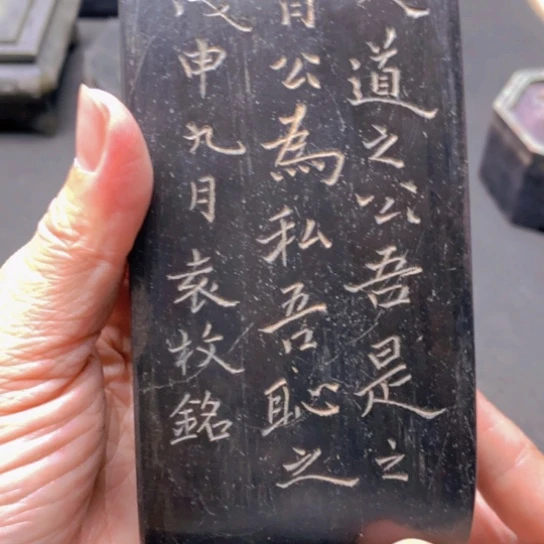 道之公吾是之
公為私吾恥之
申九月袁枚銘